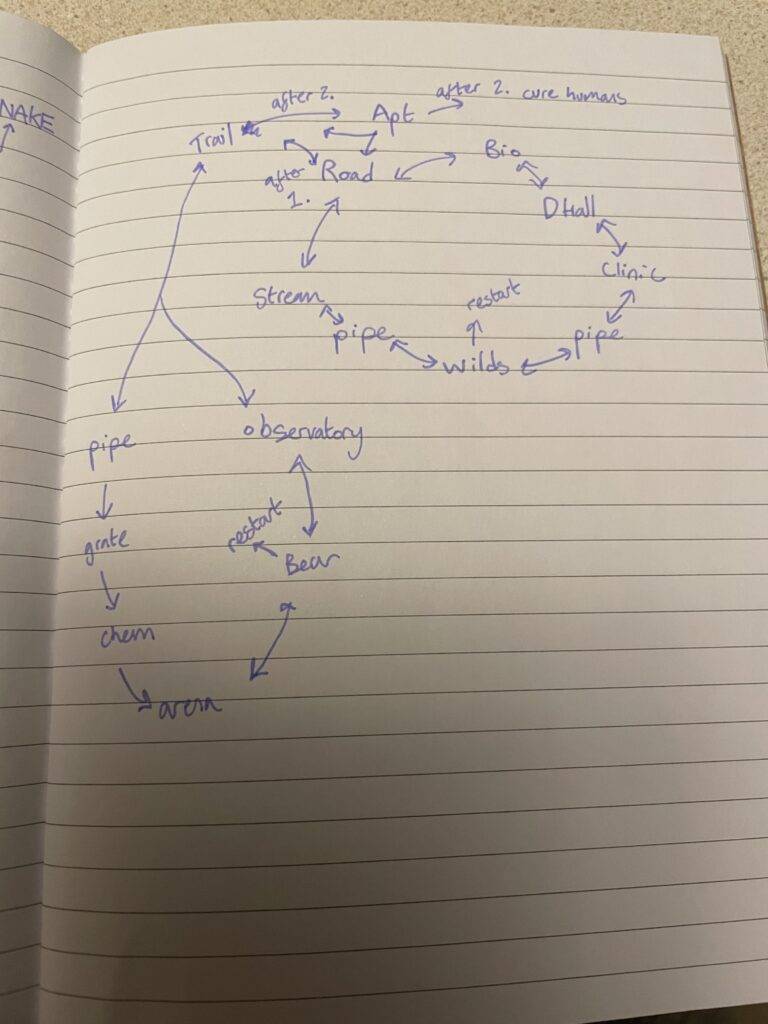 NAKE
after 2.
Apt
after 2. cure humans
Trail
after 1.
Road
Bio
DHall
Clinic
Stream
restart
pipe
wilds
pipe
pipe
observatory
grate
restart
Bear
chem
arena